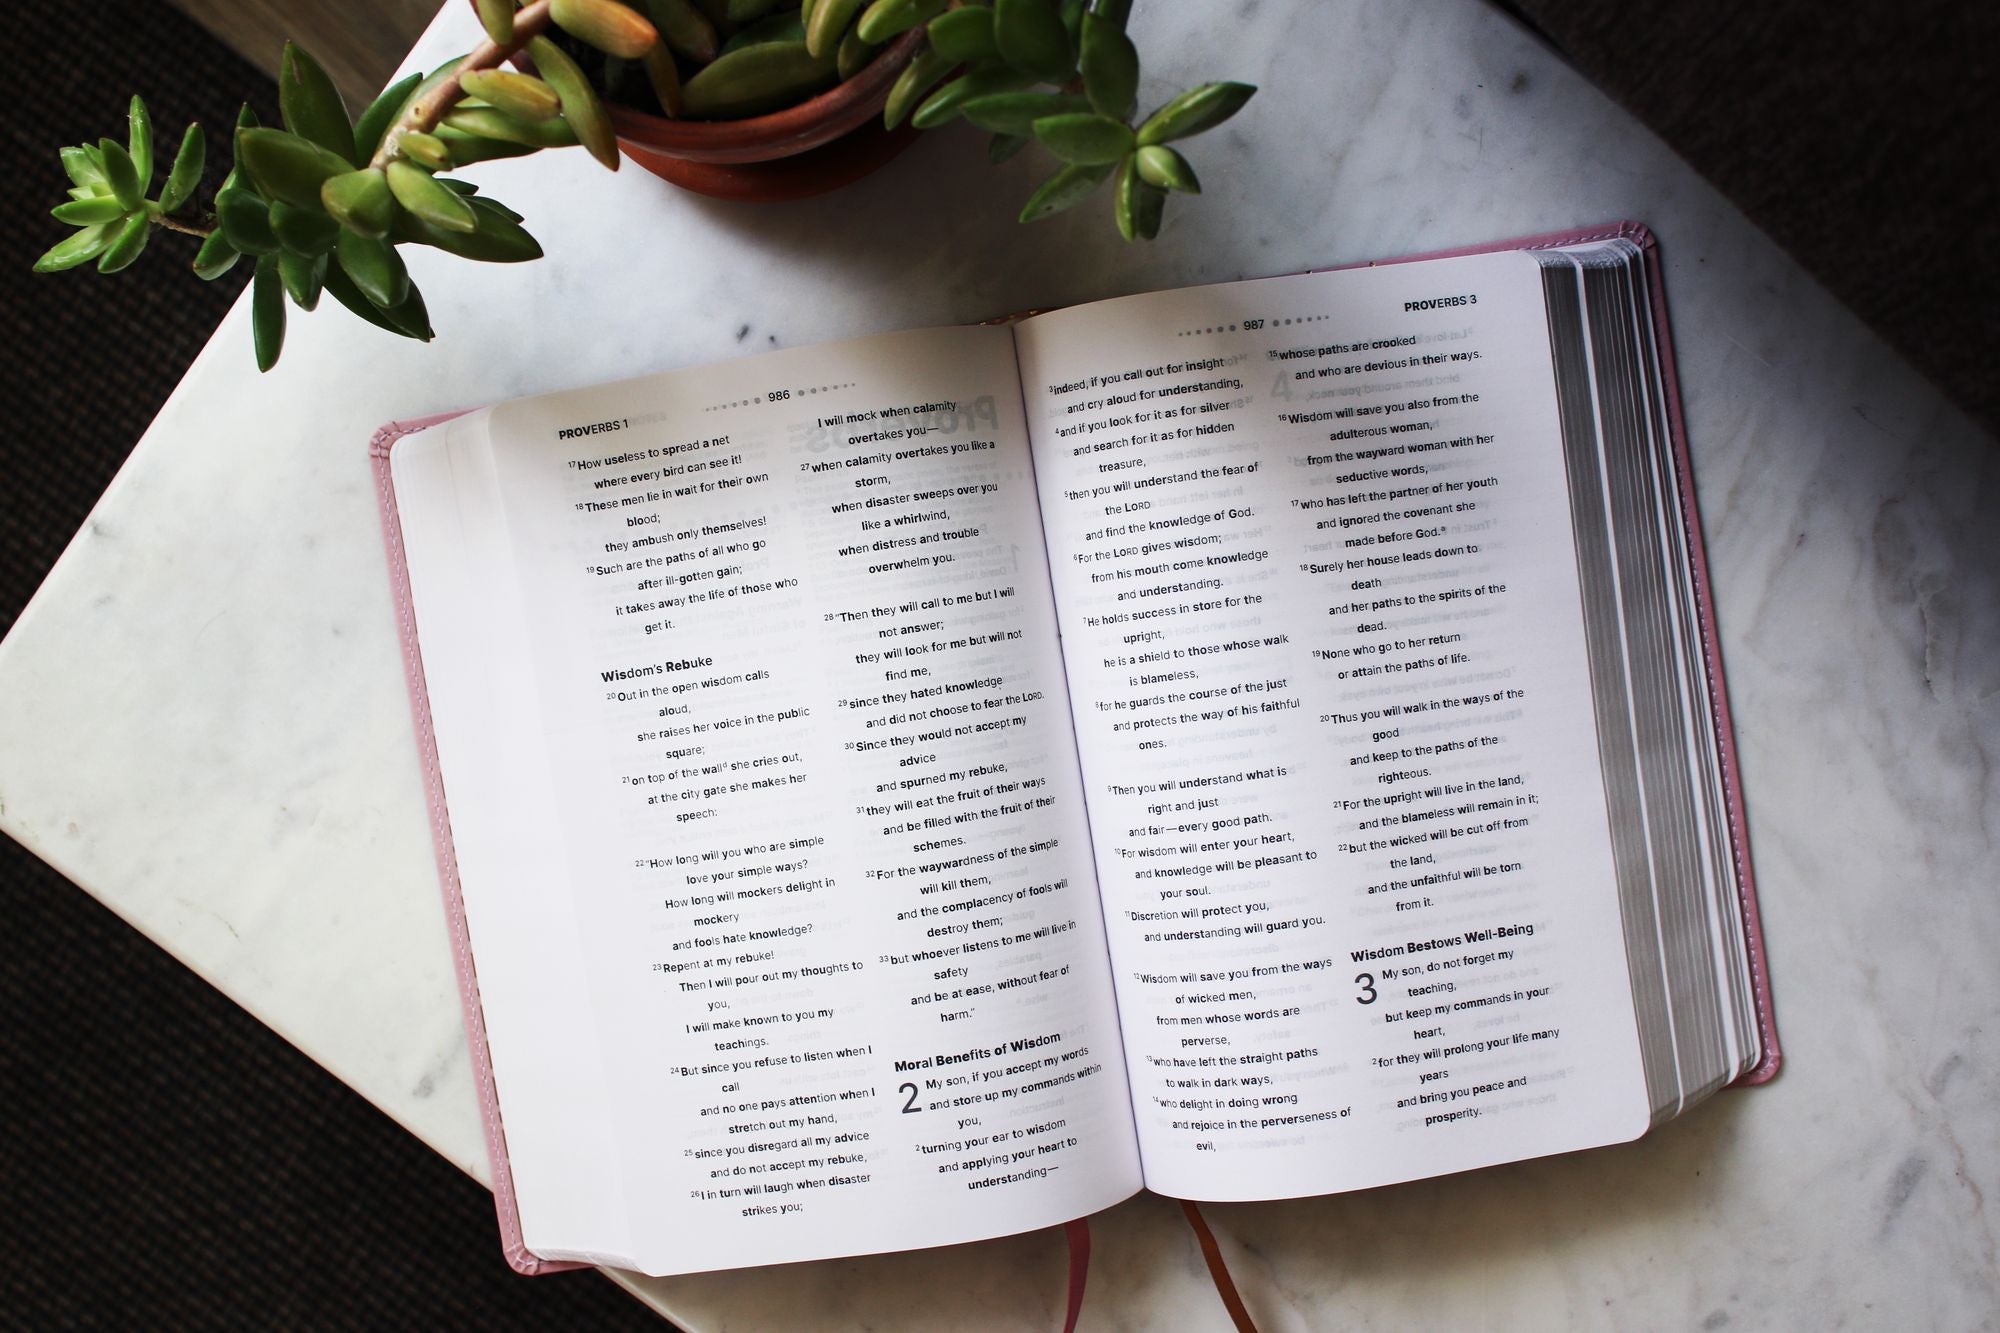 986
PROVERBS 1
17 How useless to spread a net
where every bird can see it!
18 These men lie in wait for their own
blood;
they ambush only themselves!
19 Such are the paths of all who go
after ill-gotten gain;
it takes away the life of those who
get it.
Wisdom's Rebuke
20 Out in the open wisdom calls
aloud,
she raises her voice in the public
square;
21 on top of the wall d she cries out,
at the city gate she makes her
speech:
22 "How long will you who are simple
love your simple ways?
How long will mockers delight in
mockery
and fools hate knowledge?
23 Repent at my rebuke!
Then I will pour out my thoughts to
you,
I will make known to you my
teachings.
24 But since you refuse to listen when I
call
and no one pays attention when I
stretch out my hand,
25 since you disregard all my advice
and do not accept my rebuke,
26 I in turn will laugh when disaster
strikes you;
I will mock when calamity
overtakes you—
27 when calamity overtakes you like a
storm,
when disaster sweeps over you
like a whirlwind,
when distress and trouble
overwhelm you.
28 "Then they will call to me but I will
not answer;
they will look for me but will not
find me,
29 since they hated knowledge
and did not choose to fear the LORD.
30 Since they would not accept my
advice
and spurned my rebuke,
31 they will eat the fruit of their ways
and be filled with the fruit of their
schemes.
32 For the waywardness of the simple
will kill them,
and the complacency of fools will
destroy them;
33 but whoever listens to me will live in
safety
and be at ease, without fear of
harm."
Moral Benefits of Wisdom
2 My son, if you accept my words
and store up my commands within
you,
2 turning your ear to wisdom
and applying your heart to
understanding—
987
PROVERBS 3
3 indeed, if you call out for insight
and cry aloud for understanding,
4 and if you look for it as for silver
and search for it as for hidden
treasure,
5 then you will understand the fear of
the LORD
and find the knowledge of God.
6 For the LORD gives wisdom;
from his mouth come knowledge
and understanding.
7 He holds success in store for the
upright,
he is a shield to those whose walk
is blameless,
8 for he guards the course of the just
and protects the way of his faithful
ones.
9 Then you will understand what is
right and just
and fair—every good path.
10 For wisdom will enter your heart,
and knowledge will be pleasant to
your soul.
11 Discretion will protect you,
and understanding will guard you.
12 Wisdom will save you from the ways
of wicked men,
from men whose words are
perverse,
13 who have left the straight paths
to walk in dark ways,
14 who delight in doing wrong
and rejoice in the perverseness of
evil,
15 whose paths are crooked
and who are devious in their ways.
16 Wisdom will save you also from the
adulterous woman,
from the wayward woman with her
seductive words,
17 who has left the partner of her youth
and ignored the covenant she
made before God. a
18 Surely her house leads down to
death
and her paths to the spirits of the
dead.
19 None who go to her return
or attain the paths of life.
20 Thus you will walk in the ways of the
good
and keep to the paths of the
righteous.
21 For the upright will live in the land,
and the blameless will remain in it;
22 but the wicked will be cut off from
the land,
and the unfaithful will be torn
from it.
Wisdom Bestows Well-Being
3 My son, do not forget my
teaching,
but keep my commands in your
heart,
2 for they will prolong your life many
years
and bring you peace and
prosperity.